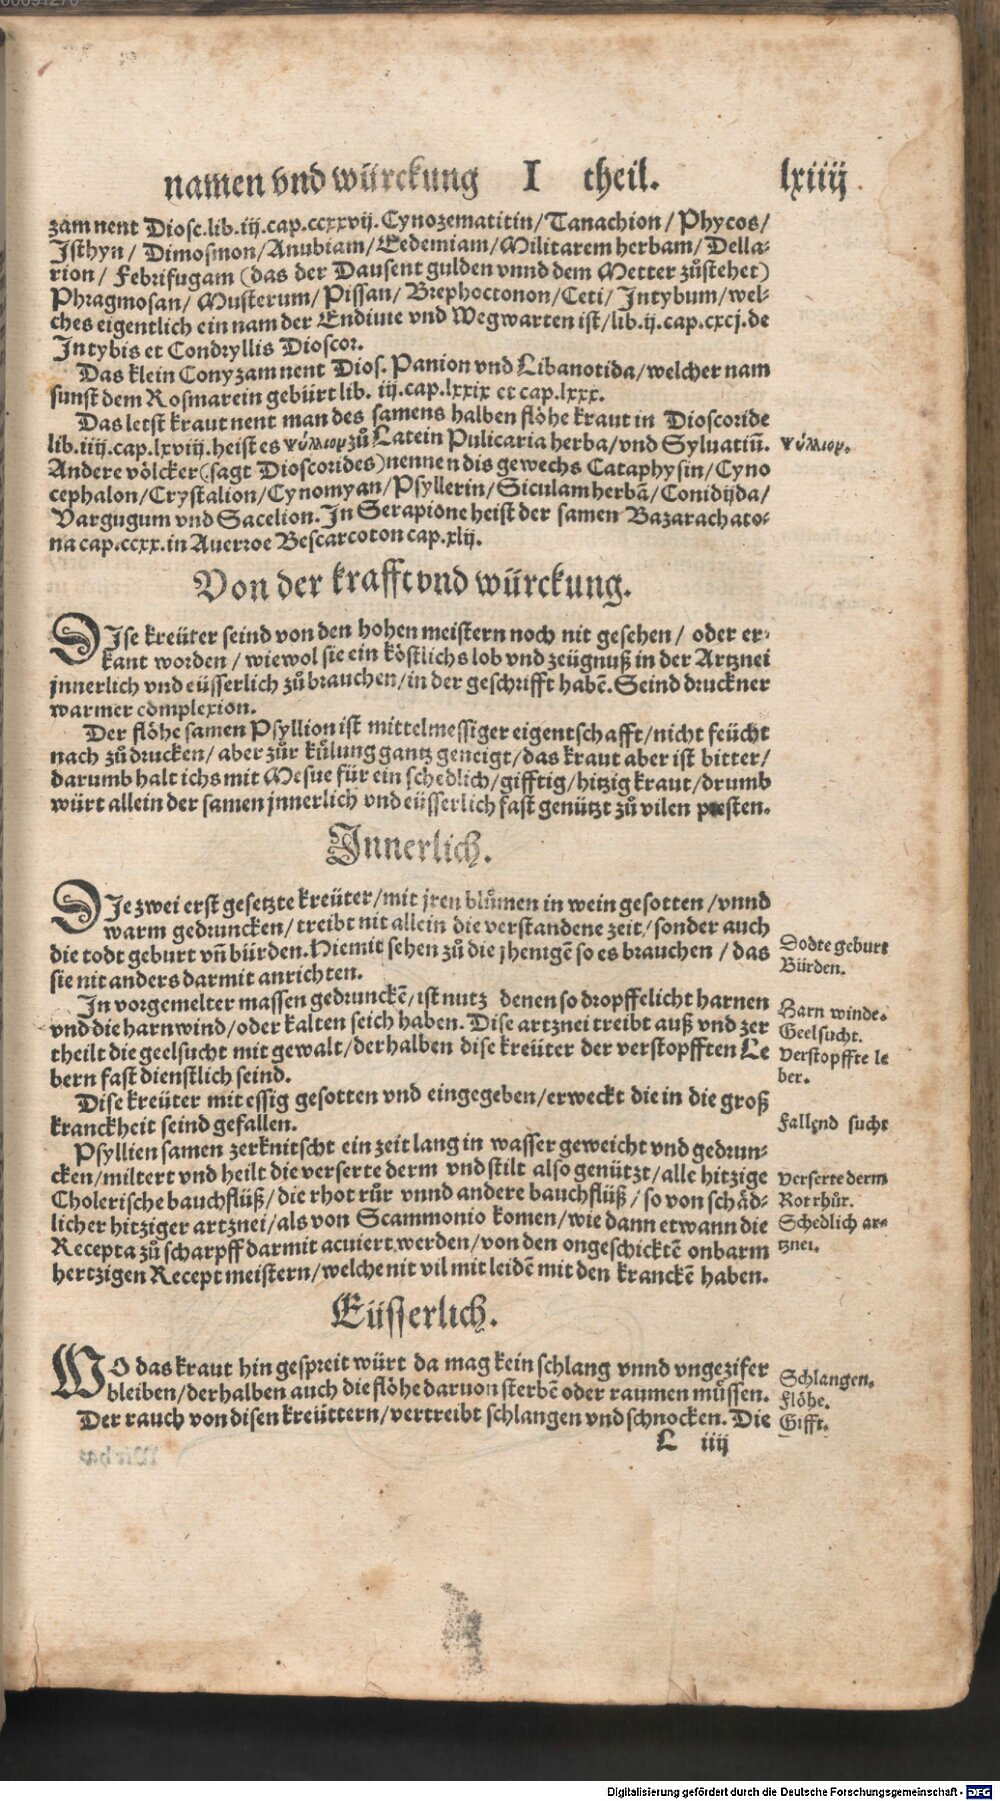 namen vnd würckung I theil. lxiiij
zam nent Diosc.lib.iij.cap.ccxxvij.Cynozematitin/Tanachion/Phycos/
Jsthyn/Dimosmon/Anubiam/Eedemiam/Militarem herbam/Della-
rion/Febrifugam (das der Dausent gulden vnnd dem Metter zůstehet)
Phragmosan/Musterum/Pissan/Brephoctonon/Ceti/Jntybum/wel-
ches eigentlich ein nam der Endiuie vnd Wegwarten ist/lib.ij.cap.cxcj.de
Jntybis et Condryllis Dioscor.
Das klein Conyzam nent Dios. Panion vnd Libanotida/welcher nam
sunst dem Rosmarein gebürt lib. iij.cap.lxxix et cap.lxxx.
Das letst kraut nent man des samens halben flöhe kraut in Dioscoride
lib.iiij.cap.lxviij.heist es ψύλλιομ zů Latein Pulicaria herba/vnd Syluatiū.
ψύλλιομ.
Andere völcker (sagt Dioscorides) nennen dis gewechs Cataphysin/Cyno
cephalon/Crystalion/Cynomyan/Psyllerin/Siculam herbā/Conidijda/
Vargugum vnd Sacelion. Jn Serapione heist der samen Bazarachato-
na cap.ccxx.in Auerroe Bescarcoton cap.xlij.
Von der krafft vnd würckung.
DJse kreüter seind von den hohen meistern noch nit gesehen/oder er-
kant worden/wiewol sie ein köstlichs lob vnd zeügnuß in der Artznei
jnnerlich vnd eüsserlich zů brauchen/in der geschrifft habē. Seind druckner
warmer complexion.
Der flöhe samen Psyllion ist mittelmessiger eigentschafft/nicht feücht
nach zů drucken/aber zůr kůlung gantz geneigt/das kraut aber ist bitter/
darumb halt ichs mit Mesue für ein schedlich/gifftig/hitzig kraut/drumb
würt allein der samen jnnerlich vnd eüsserlich fast genützt zů vilen presten.
Jnnerlich.
DJe zwei erst gesetzte kreüter/mit jren blůmen in wein gesotten/vnnd
warm gedruncken/treibt nit allein die verstandene zeit/sonder auch
die todt geburt vñ bürden. Hiemit sehen zů die jhenigē so es brauchen/das
Dodte geburt
Bürden.
sie nit anders darmit anrichten.
Jn vorgemelter massen gedrunckē/ist nutz denen so dropffelicht harnen
vnd die harnwind/oder kalten seich haben. Dise artznei treibt auß vnd zer
Harn winde.
Geelsucht.
theilt die geelsucht mit gewalt/derhalben dise kreüter der verstopfften Le
Verstopffte le
ber.
bern fast dienstlich seind.
Dise kreüter mit essig gesotten vnd eingegeben/erweckt die in die groß
kranckheit seind gefallen.
Fallend sucht
Psyllien samen zerknitscht ein zeit lang in wasser geweicht vnd gedrun-
cken/miltert vnd heilt die verserte derm vnd stilt also genützt/alle hitzige
Verserte derm
Cholerische bauchflüß/die rhot růr vnnd andere bauchflüß/so von schäd-
Rot rhůr.
licher hitziger artznei/als von Scammonio komen/wie dann etwann die
Schedlich ar-
tznei.
Recepta zů scharpff darmit acuiert werden/von den ongeschicktē onbarm
hertzigen Recept meistern/welche nit vil mit leidē mit den kranckē haben.
Eüsserlich.
WO das kraut hin gespreit würt da mag kein schlang vnnd vngezifer
Schlangen.
bleiben/derhalben auch die flöhe daruon sterbē oder raumen můssen.
Flöhe.
Der rauch von disen kreüttern/vertreibt schlangen vnd schnocken. Die
Gifft.
L iiij
Digitalisierung gefördert durch die Deutsche Forschungsgemeinschaft - DFG